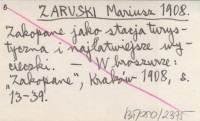 ZARUSKI Mariusz 1908.
Zakopane jako stacja turys-
tyczna i najłatwiejsze wy-
cieczki. — W broszurze:
"Zakopane", Kraków 1908, s.
13-39.